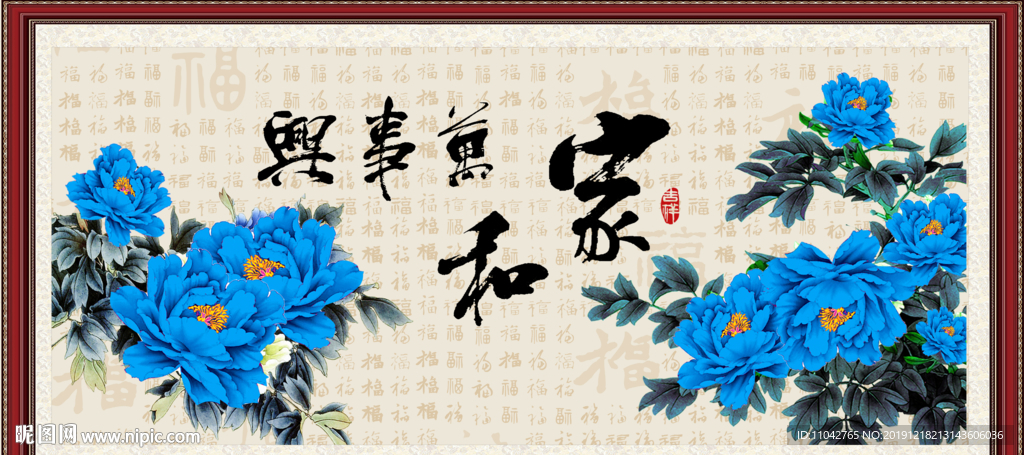 家和
萬事興
吉祥
福
昵图网 www.nipic.com
ID:11042765 NO:20191218213143606036